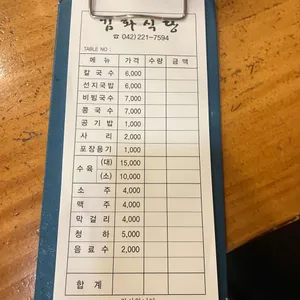 김화식당
☎ 042)221-7594
TABLE NO :
메뉴 가격 수량 금액
칼국수 6,000
선지국밥 6,000
비빔국수 7,000
콩국수 7,000
공기밥 1,000
사리 2,000
포장용기 1,000
수육 (대) 15,000
(소) 10,000
소주 4,000
맥주 4,000
막걸리 4,000
청하 5,000
음료수 2,000
합계